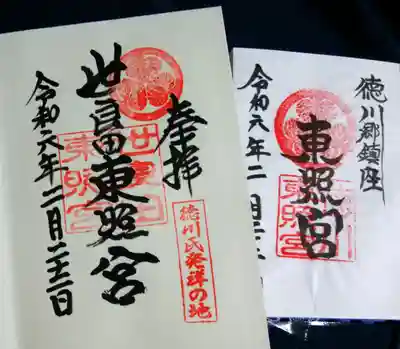 奉拝
世良田東照宮
令和六年二月二十二日
徳川氏発祥の地
世良田
東照宮
徳川郷鎮座
東照宮
令和六年二月二十二日